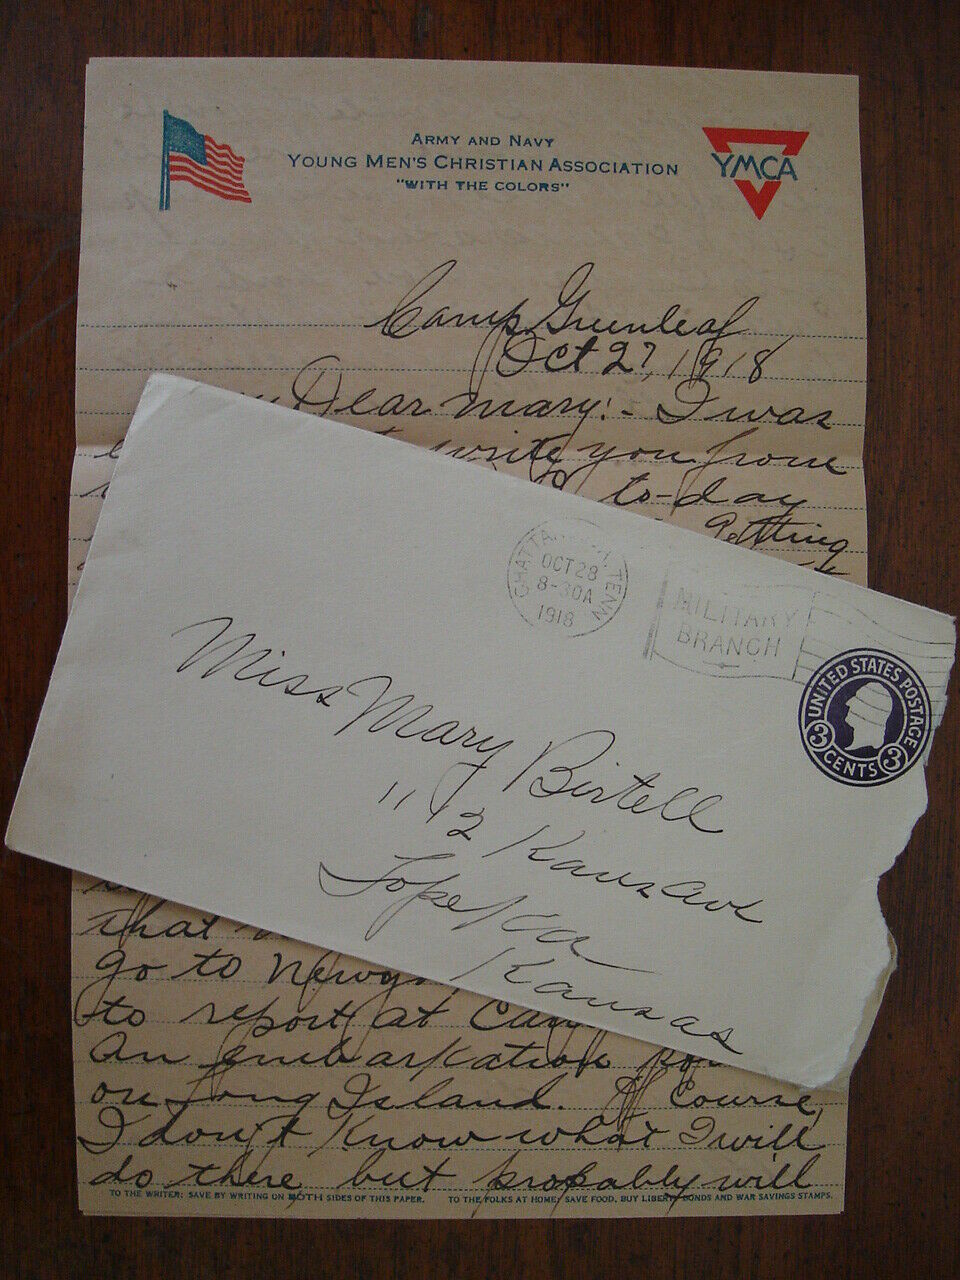 ARMY AND NAVY
YOUNG MEN'S CHRISTIAN ASSOCIATION
"WITH THE COLORS"
YMCA
Camp Greenleaf
Oct 27, 1918
Dear Mary:- I was
write you from
to-day
Getting
CHATTA TENN.
OCT 28
8-30A
1918
MILITARY
BRANCH
UNITED STATES POSTAGE
3 CENTS 3
Miss Mary Birtell
112 Kans ave
Topeka
Kansas
that
go to
to report at
an embarkation
on Long Island. Of Course,
I don't know what I will
do there but probably will
TO THE WRITER: SAVE BY WRITING ON BOTH SIDES OF THIS PAPER. TO THE FOLKS AT HOME: SAVE FOOD, BUY LIBERTY BONDS AND WAR SAVINGS STAMPS.